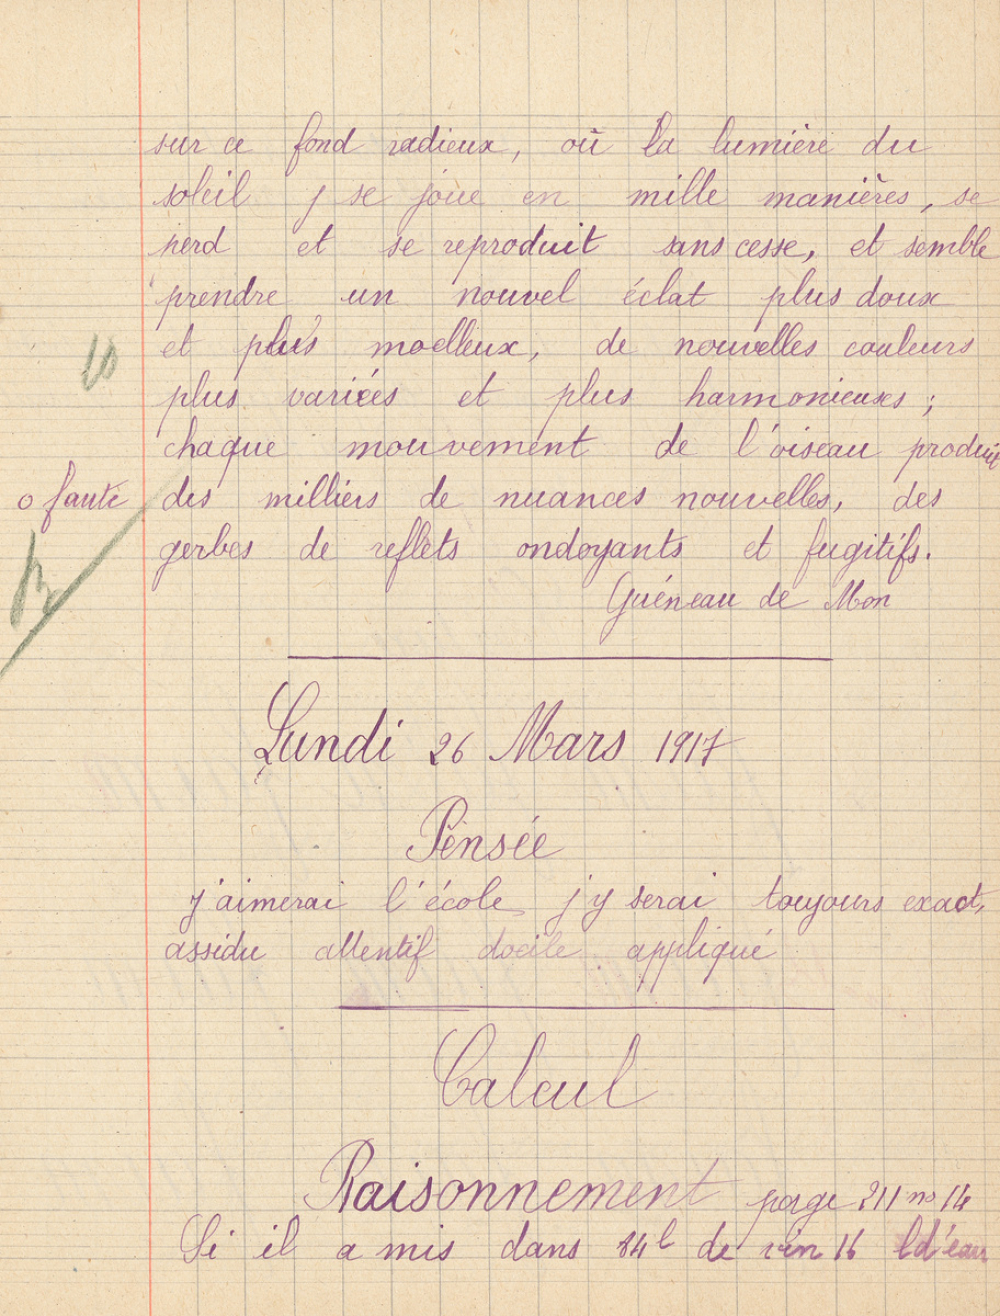 sur ce fond radieux, où la lumière du
soleil y se joue en mille manières, se
perd et se reproduit sans cesse, et semble
prendre un nouvel éclat plus doux
et plus moelleux, de nouvelles couleurs
10
plus variées et plus harmonieuses ;
chaque mouvement de l'oiseau produit
0 faute
des milliers de nuances nouvelles, des
gerbes de reflets ondoyants et fugitifs.
B
Guéneau de Mon
Lundi 26 Mars 1917
Pensée
j'aimerai l'école j'y serai toujours exact,
assidu attentif docile appliqué
Calcul
Raisonnement page 211 no 14
Si il a mis dans 84l de vin 16 l d'eau